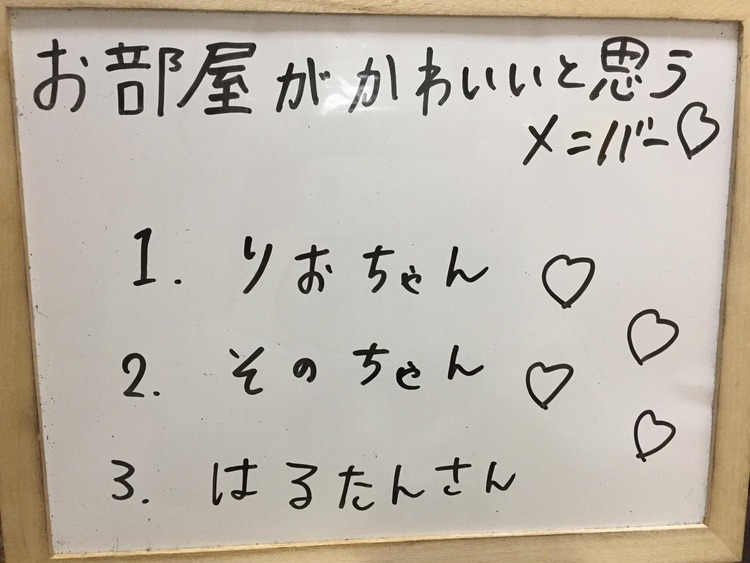 お部屋がかわいいと思う
メンバー♡
1. りおちゃん ♡
2. そのちゃん ♡
3. はるたんさん